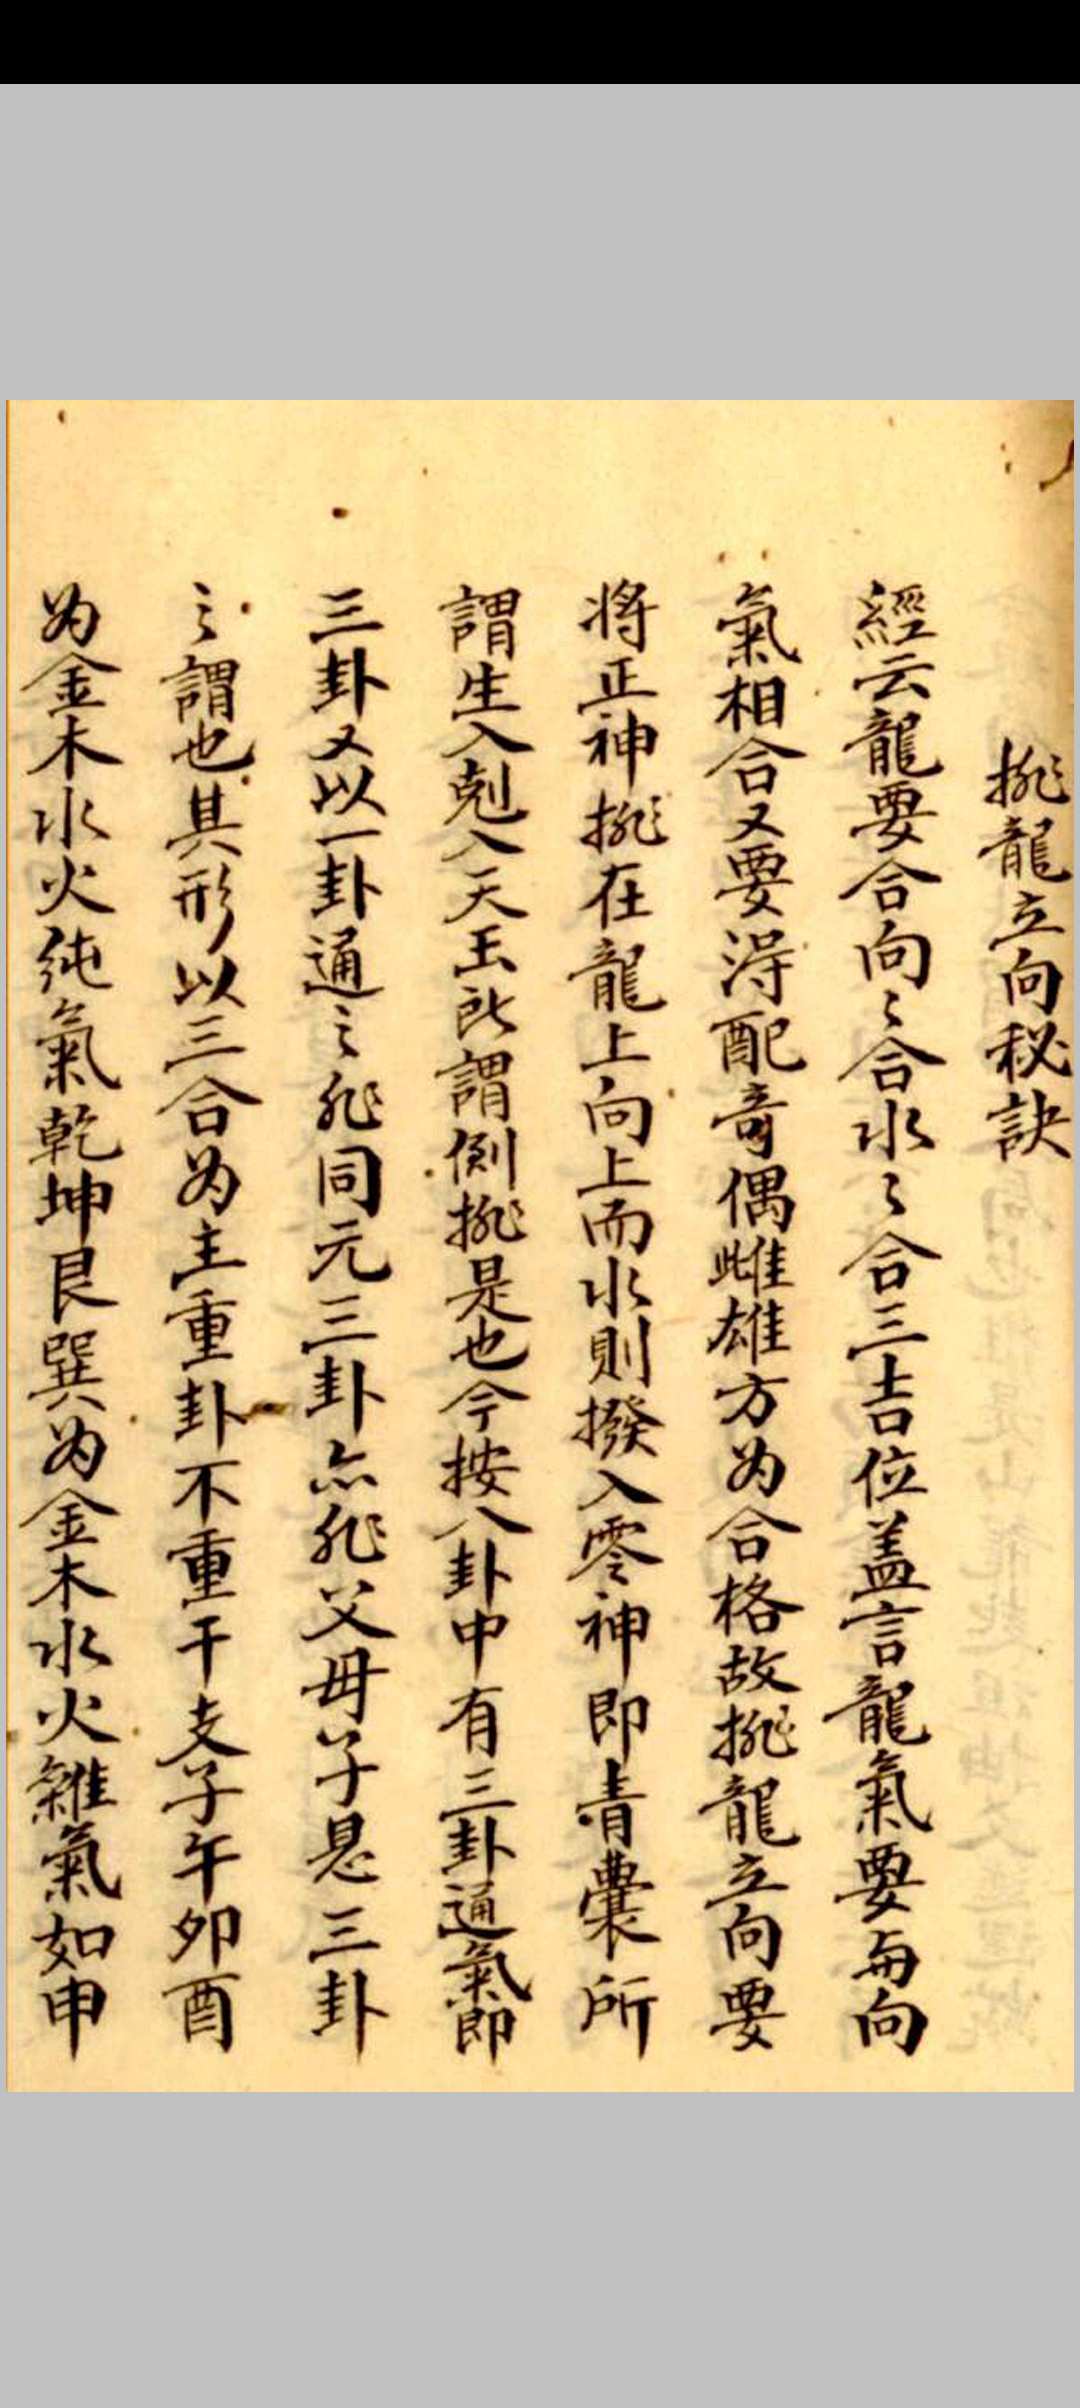 排龍立向秘訣
經云龍要合向々合水々合三吉位盖言龍氣要与向
氣相合又要淂配竒偶雌雄方为合格故排龍立向要
将正神排在龍上向上而水則撥入零神即青囊所
謂生入剋入天玉所謂倒排是也今按八卦中有三卦通氣即
三卦又以一卦通之非同元三卦亦非父母子息三卦
之謂也其形以三合为主重卦不重干支子午卯酉
为金木水火純氣乾坤艮巽为金木水火雜氣如申